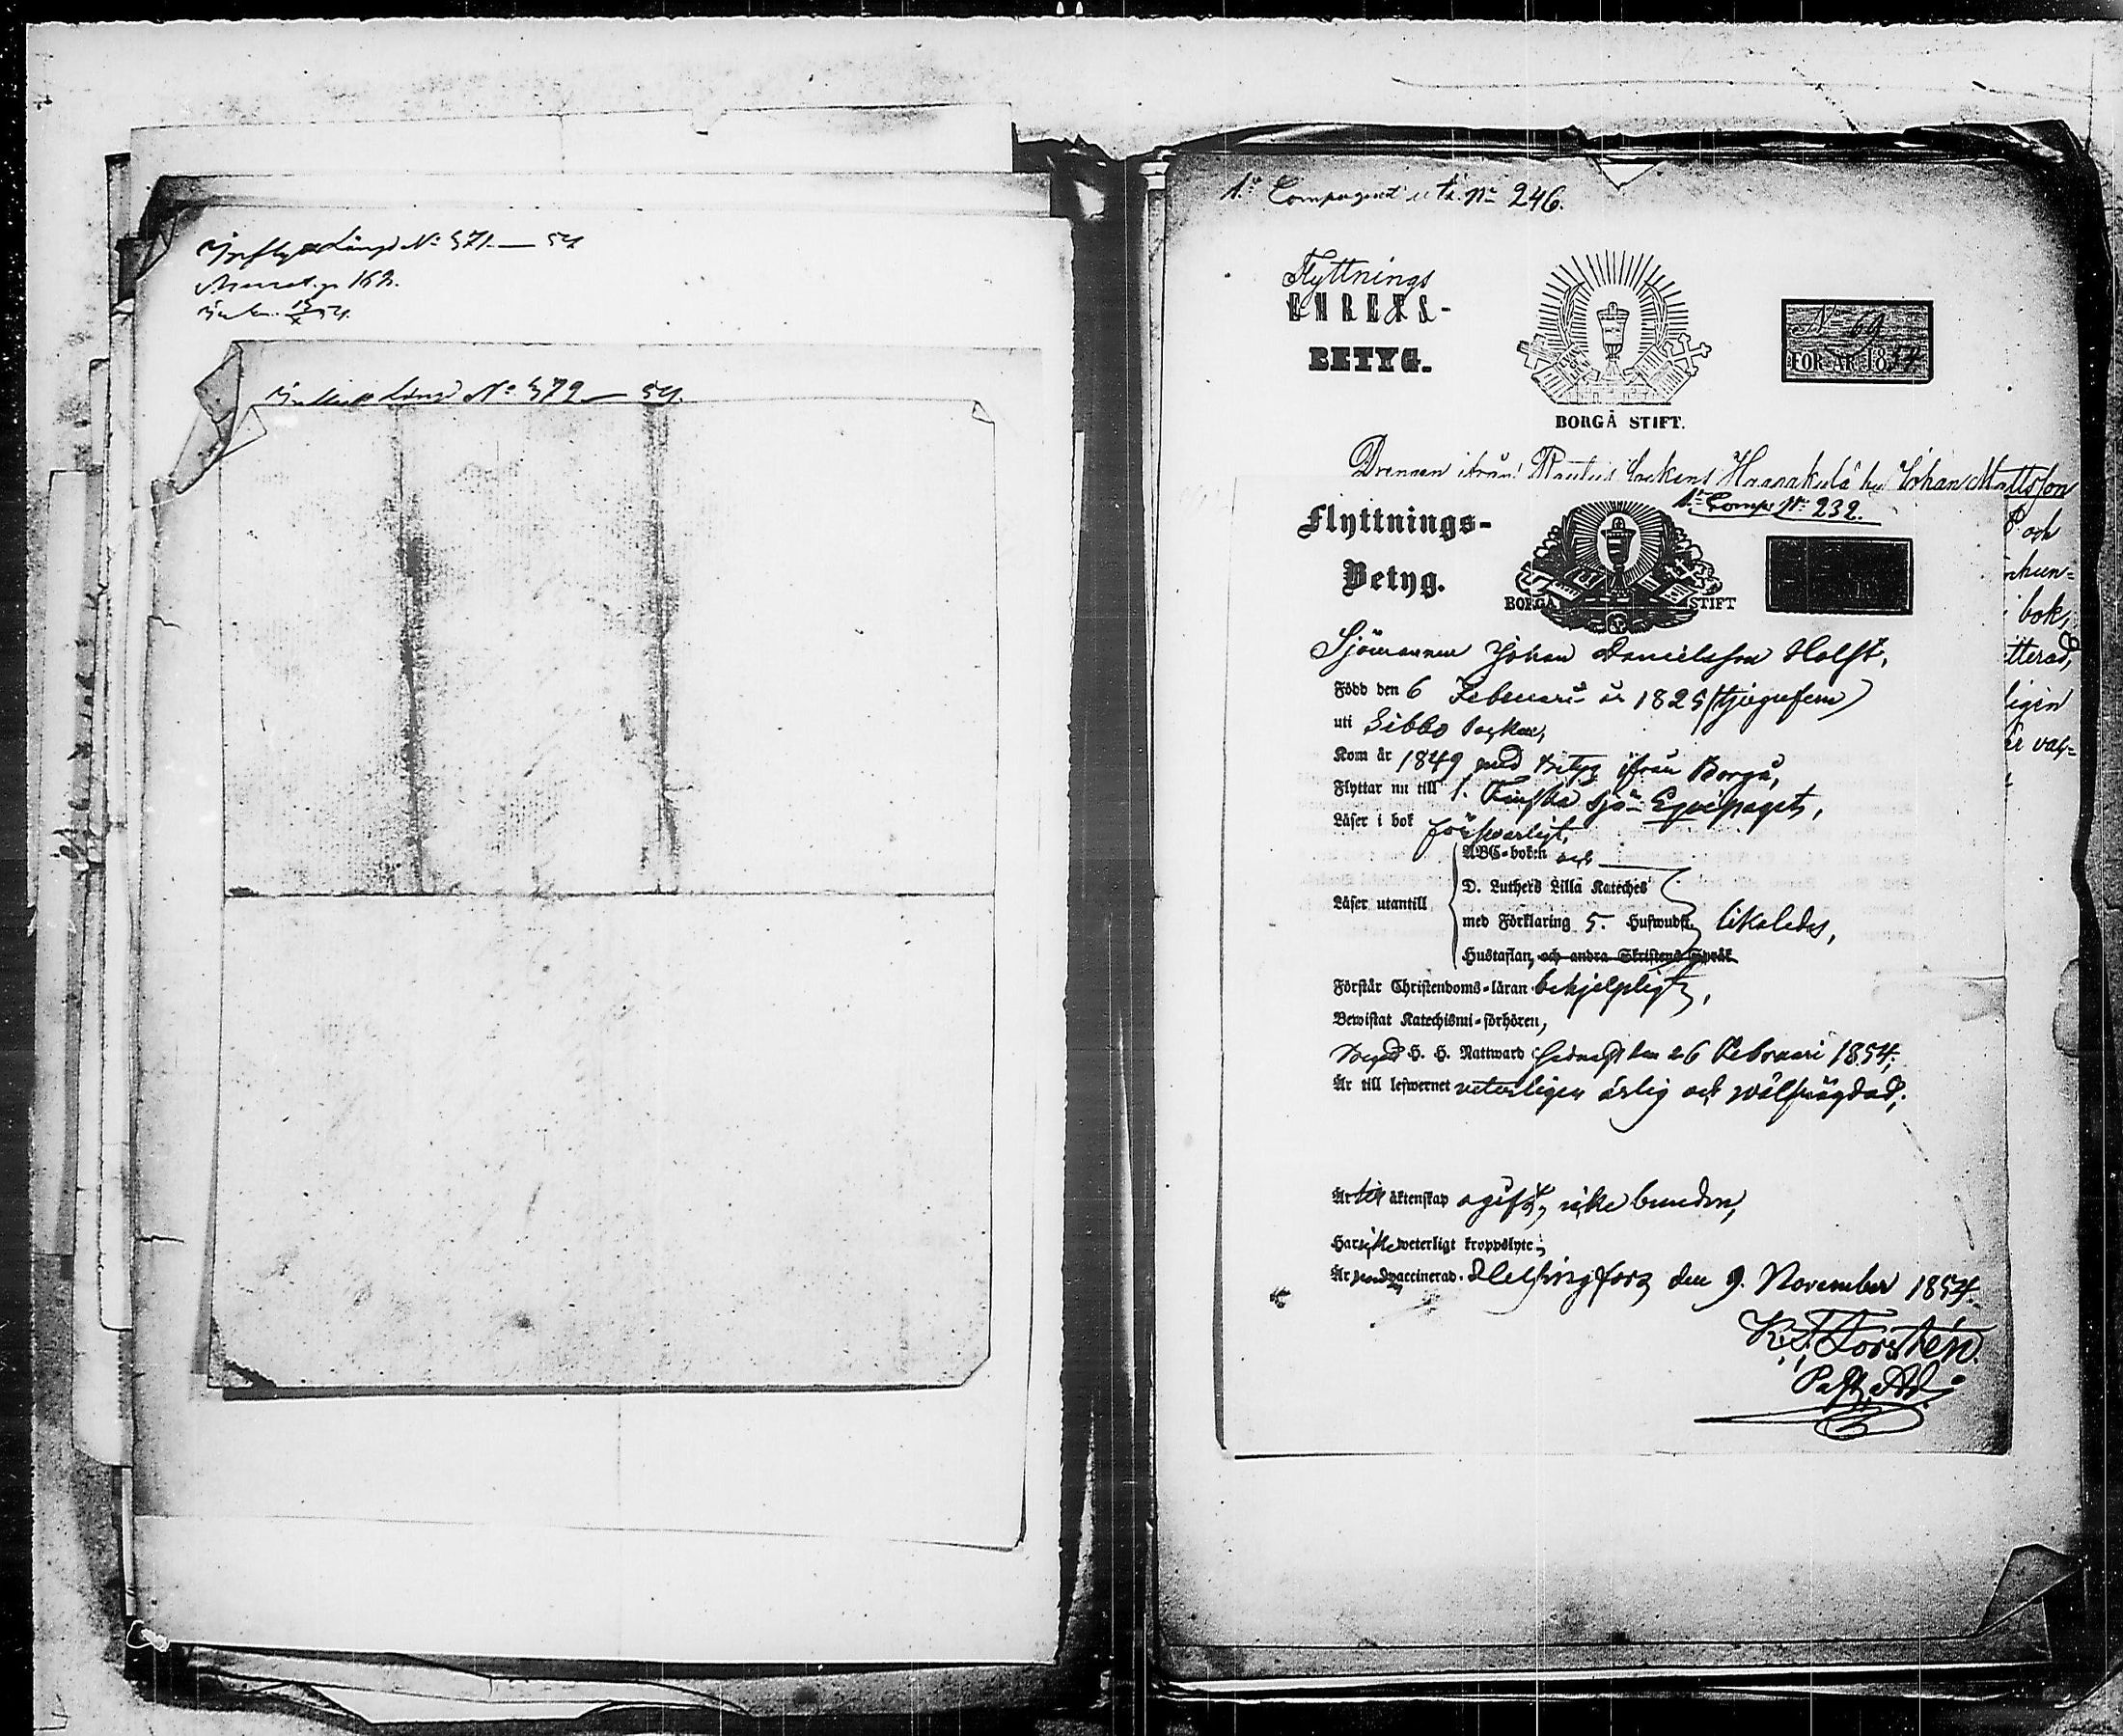 Inflyttn. Längd No 571.—54
p. 162.
Längd No 572—54.
1a Compagniet No 246.
Flyttnings
EHREKS-
BETYG.
No 69
FÖR ÅR 1854
BORGÅ STIFT.
Drengen ifrån Sockens Haarakulå by Johan Mattsson
1a Comp. No 232.
Flyttnings-
Betyg.
BORGÅ STIFT
och
bok,
Sjömannen Johan Danielsson Holst,
Född den 6 Februari år 1825 (tjugufem)
uti Sibbo Socken,
Kom år 1849 med betyg ifrån Borgå,
Flyttar nu till 1. Finska Sjö-Equipaget,
Läser i bok försvarligt,
ABC-boken och
D. Luthers Lilla Kateches
Läser utantill
med Förklaring 5. Hufwudst.
likaledes,
Hustaflan, och andra Skriftens Språk
Förstår Christendoms-läran behjelpligt,
Bewistat Katechismi-förhören,
Begått H. H. Nattward sednast den 26 Februari 1854,
Är till lefwernet veterligen ärlig och wälfrägdad,
Är till äktenskap ogift, icke bunden,
Har icke weterligt kroppslyte,
Är vaccinerad. Helsingfors den 9. November 1854.
K. F. Forstén.
Past. Adj.